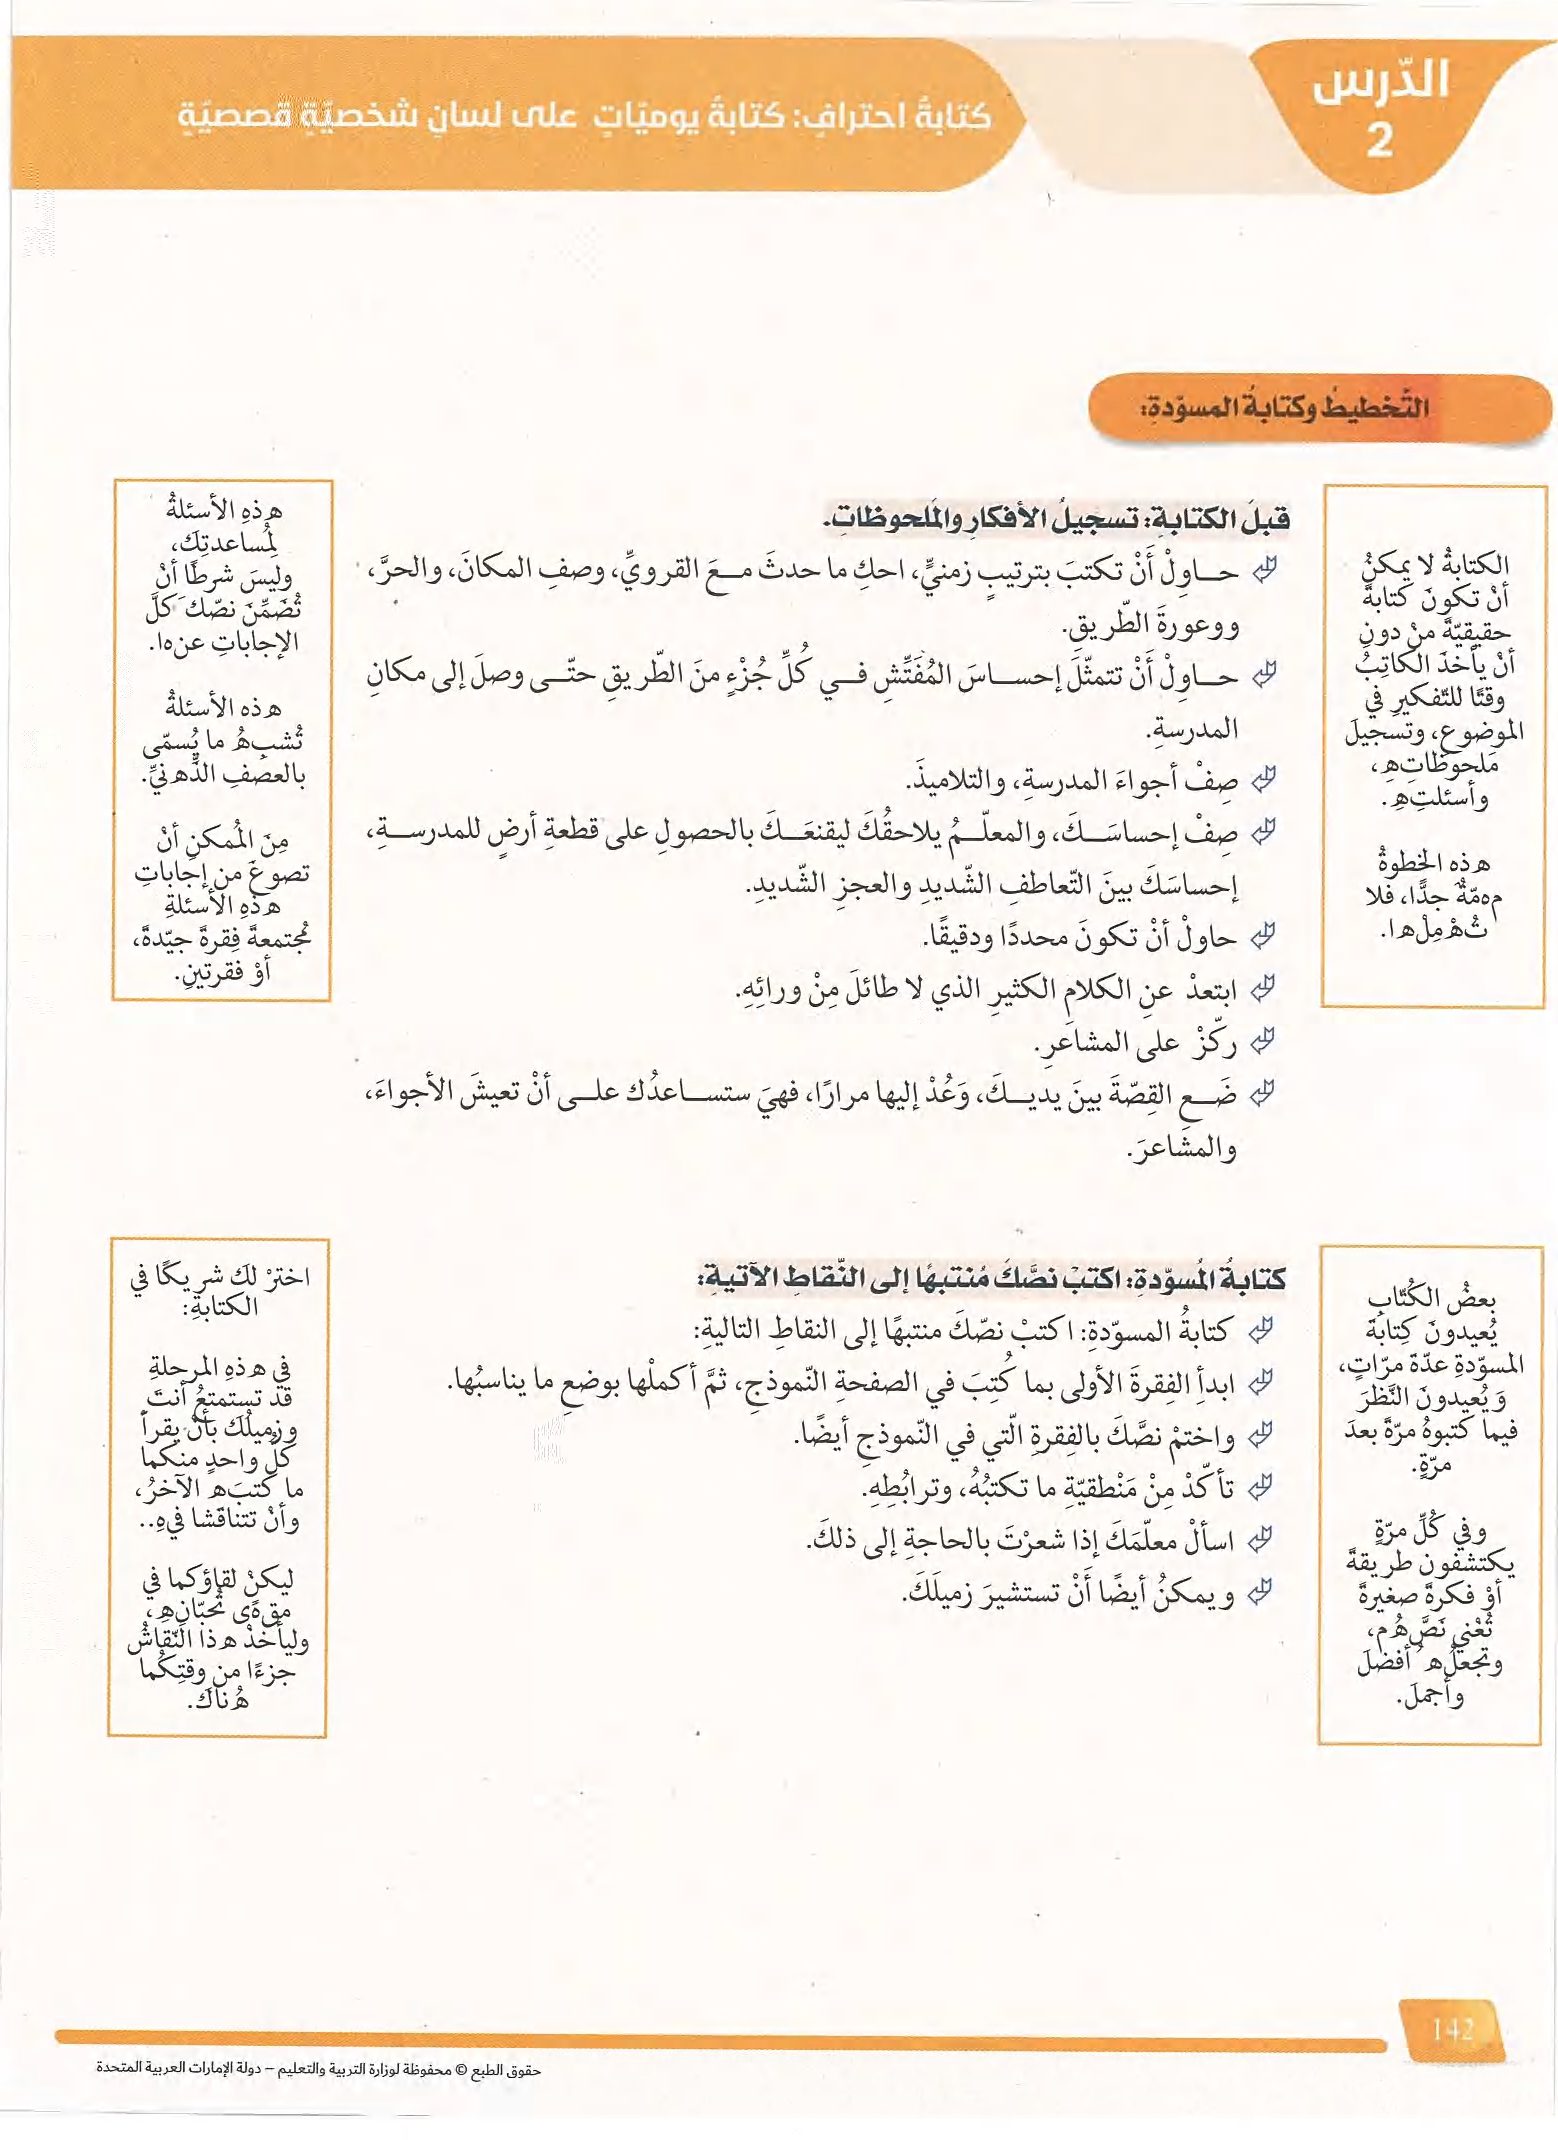 الدّرس
2
كتابةُ احترافٍ: كتابةُ يوميّاتٍ على لسانِ شخصيّةٍ قصصيّةٍ
التّخطيطُ وكتابةُ المسوّدةِ:
الكتابةُ لا يمكنُ
أنْ تكونَ كتابةً
حقيقيّةً منْ دونِ
أنْ يأخذَ الكاتِبُ
وقتًا للتّفكيرِ في
الموضوعِ، وتسجيلَ
مَلحوظَاتِهِ،
وأسئلتِهِ.
هذه الخطوةُ
مهمّةٌ جدًّا، فلا
تُهْمِلْها.
قبلَ الكتابةِ: تسجيلُ الأفكارِ والمَلحوظاتِ.
حاولْ أَنْ تكتبَ بترتيبٍ زمنيٍّ، احكِ ما حدثَ معَ القرويِّ، وصفِ المكانَ، والحرَّ،
ووعورةَ الطّريقِ.
حاولْ أَنْ تتمثّلَ إحساسَ المُفَتِّشِ في كُلِّ جُزْءٍ منَ الطّريقِ حتّى وصلَ إلى مكانِ
المدرسةِ.
صِفْ أجواءَ المدرسةِ، والتلاميذَ.
صِفْ إحساسَكَ، والمعلّمُ يلاحقُكَ ليقنعَكَ بالحصولِ على قطعةِ أرضٍ للمدرسةِ،
إحساسَكَ بينَ التّعاطفِ الشّديدِ والعجزِ الشّديدِ.
حاولْ أنْ تكونَ محددًا ودقيقًا.
ابتعدْ عنِ الكلامِ الكثيرِ الذي لا طائلَ مِنْ ورائِهِ.
ركّزْ على المشاعَرِ.
ضَعِ القِصّةَ بينَ يديكَ، وَعُدْ إليها مرارًا، فهيَ ستساعدُك على أنْ تعيشَ الأجواءَ،
والمشاعرَ.
هذهِ الأسئلةُ
لِمُساعدتِكَ،
وليسَ شرطًا أنْ
تُضَمِّنَ نصّكَ كلَّ
الإجاباتِ عنها.
هذه الأسئلةُ
تُشبِهُ ما يُسمّى
بالعصفِ الذِّهنيِّ.
مِنَ المُمكنِ أنْ
تصوغَ من إجاباتِ
هذهِ الأسئلةِ
مُجتمعةً فِقرةً جيّدةً،
أوْ فقرتينِ.
بعضُ الكُتّابِ
يُعيدونَ كِتابةَ
المسوّدةِ عدّةَ مرّاتٍ،
وَيُعيدونَ النَّظرَ
فيما كتبوهُ مرّةً بعدَ
مرّةٍ.
وفي كُلِّ مرّةٍ
يكتشفون طريقةً
أوْ فكرةً صغيرةً
تُغْني نَصَّهُم،
وتجعلُه أفضلَ
وأجملَ.
كتابةُ المُسوّدةِ: اكتبْ نصَّكَ مُنتبهًا إلى النّقاطِ الآتيةِ:
كتابةُ المسوّدةِ: اكتبْ نصّكَ منتبهًا إلى النقاطِ التاليةِ:
ابدأ الفِقرةَ الأولى بما كُتِبَ في الصفحةِ النّموذجِ، ثمَّ أكملْها بوضعِ ما يناسبُها.
واختمْ نصَّكَ بالفِقرةِ الّتي في النّموذجِ أيضًا.
تأكّدْ مِنْ مَنْطقيّةِ ما تكتبُهُ، وترابُطِهِ.
اسألْ معلّمَكَ إذا شعرْتَ بالحاجةِ إلى ذلكَ.
ويمكنُ أيضًا أَنْ تستشيرَ زميلَكَ.
اخترْ لكَ شريكًا في
الكتابةِ:
في هذهِ المرحلةِ
قد تستمتعُ أنتَ
وزميلُكَ بأنْ يقرأَ
كلُّ واحدٍ منكما
ما كتبَه الآخرُ،
وأنْ تتناقشا فيهِ..
ليكنْ لقاؤكما في
مقهًى تُحبّانِهِ،
وليأخذْ هذا النّقاشُ
جزءًا من وقتِكُما
هُناكَ.
142
حقوق الطبع © محفوظة لوزارة التربية والتعليم – دولة الإمارات العربية المتحدة